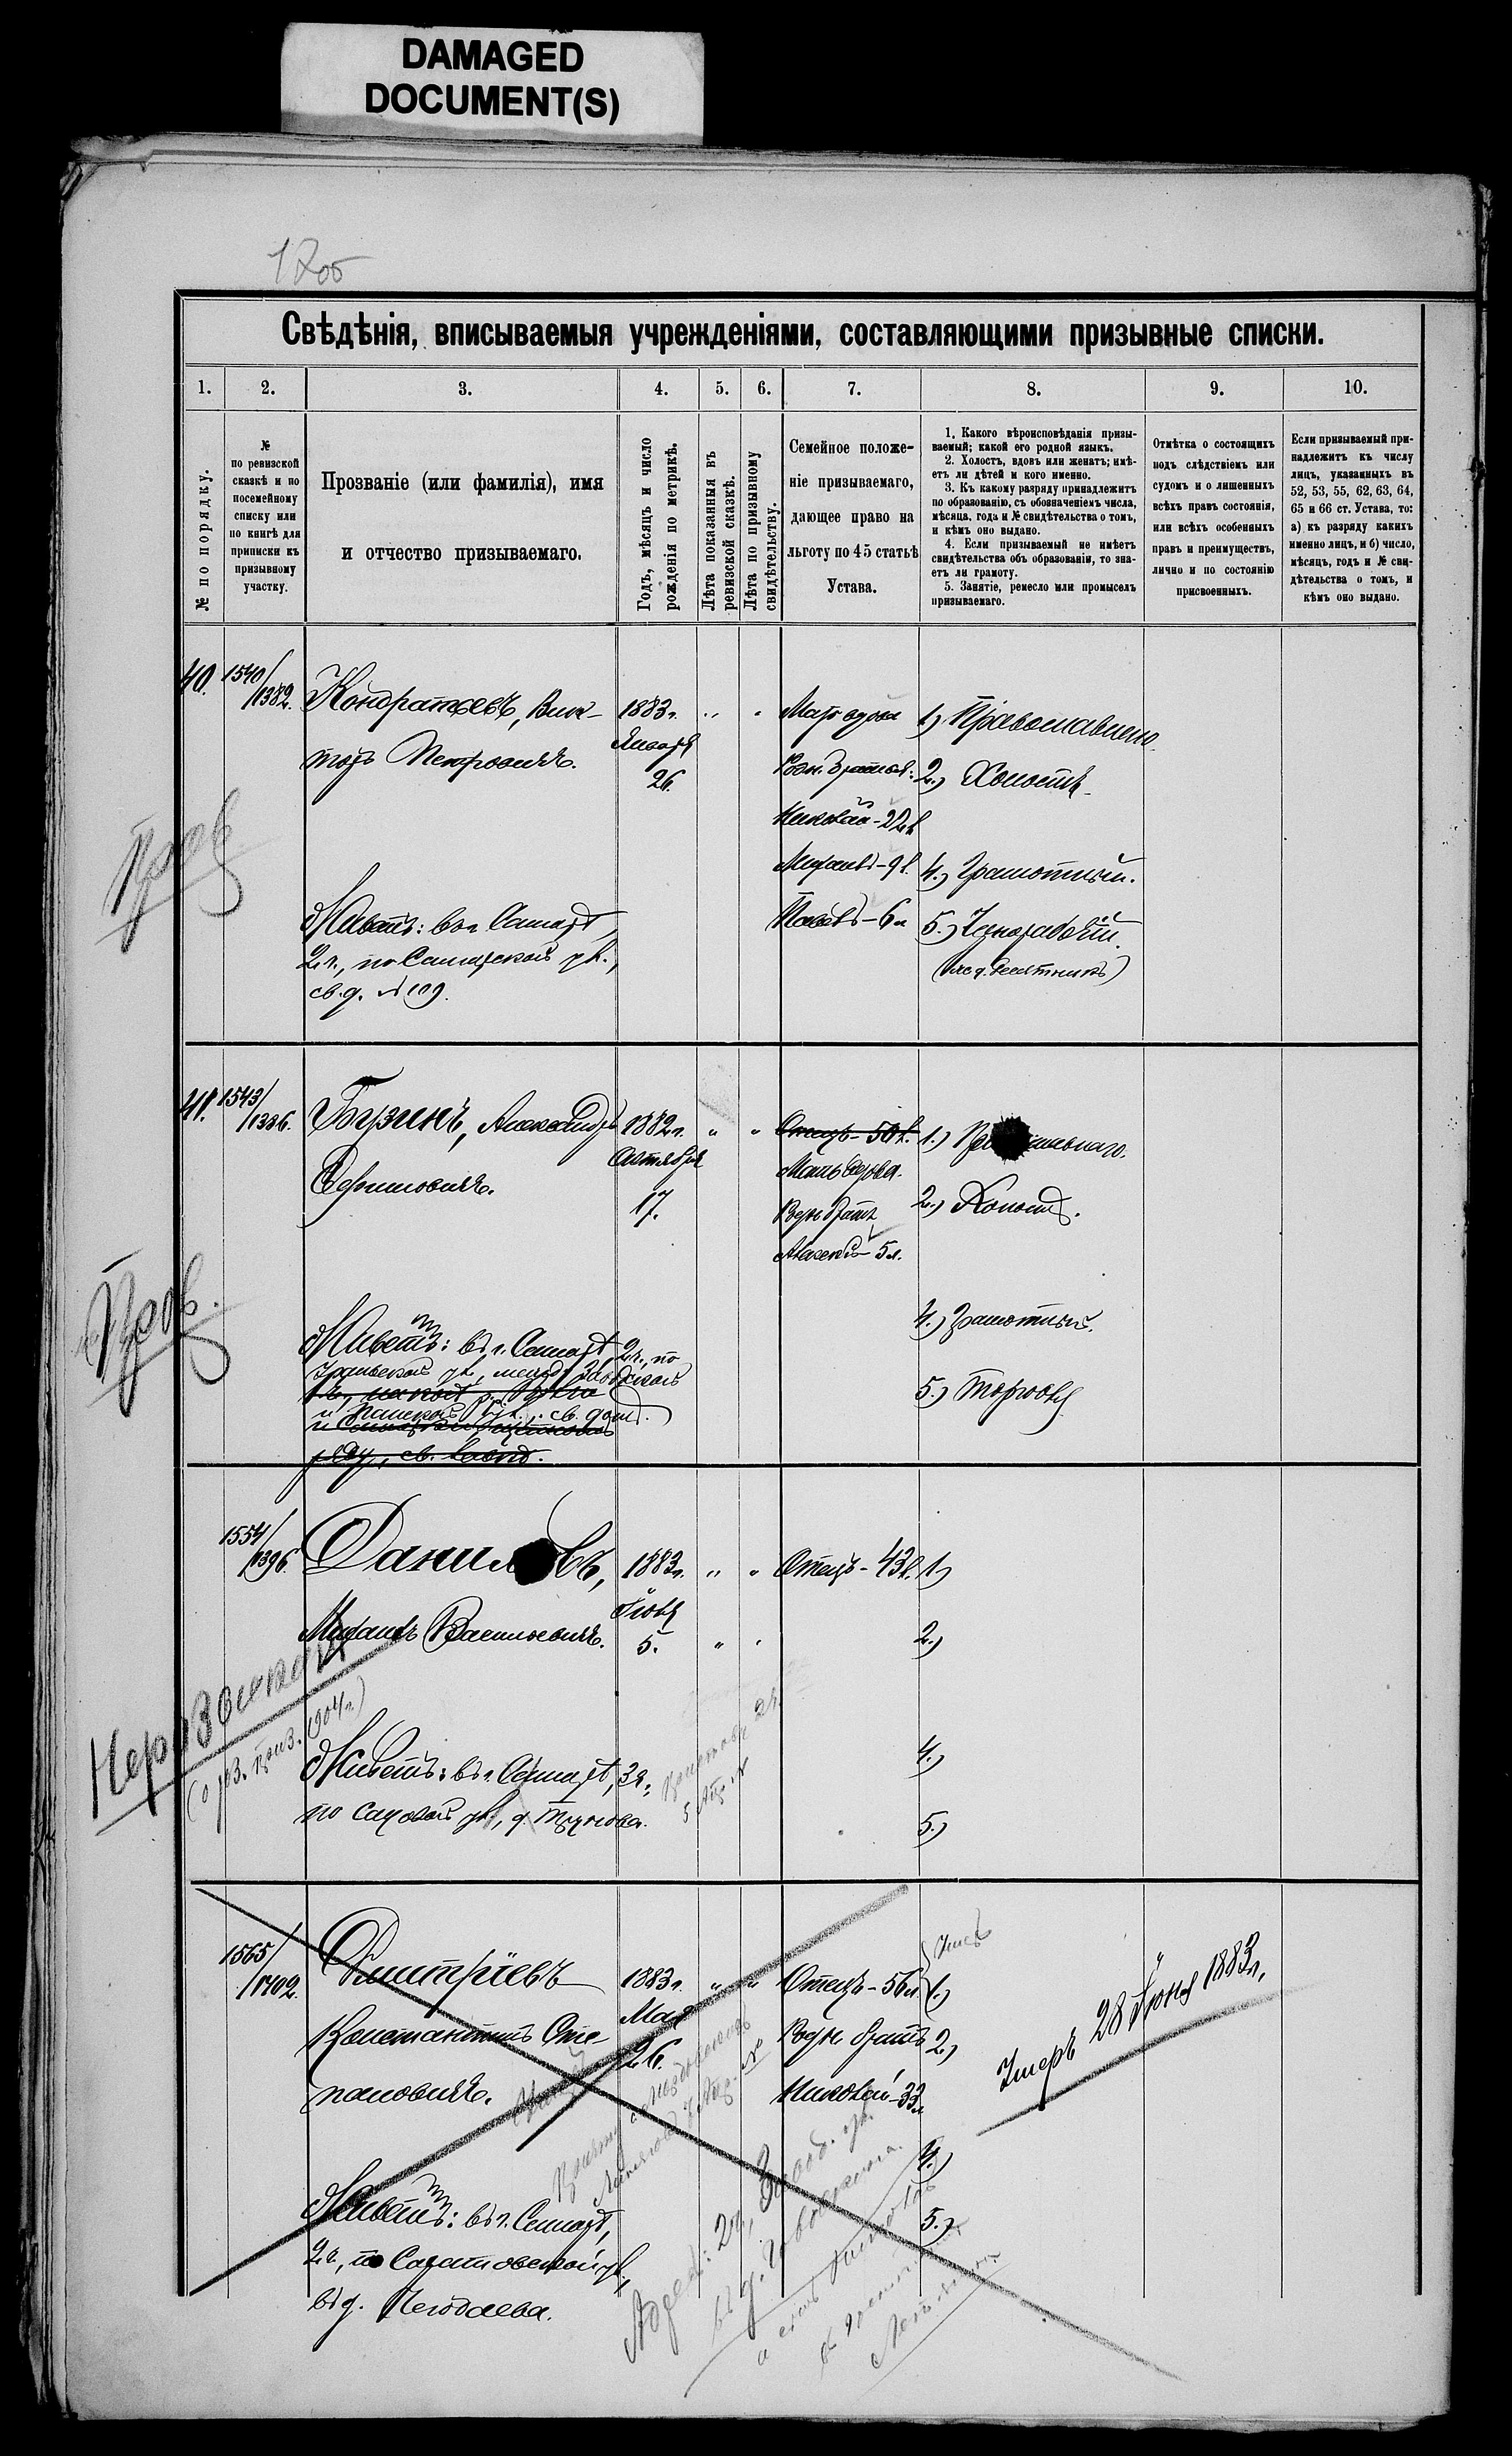 DAMAGED
DOCUMENT(S)
12об
Свѣдѣнія, вписываемыя учрежденіями, составляющими призывные списки.
1.
2.
3.
4.
5.
6.
7.
8.
9.
10.
№ по порядку.
№
по ревизской
сказкѣ и по
посемейному
списку или
по книгѣ для
приписки къ
призывному
участку.
Прозваніе (или фамилія), имя
и отчество призываемаго.
Годъ, мѣсяцъ и число
рожденія по метрикѣ.
Лѣта показанныя въ
ревизской сказкѣ.
Лѣта по призывному
свидѣтельству.
Семейное положе-
ніе призываемаго,
дающее право на
льготу по 45 статьѣ
Устава.
1. Какого вѣроисповѣданія призы-
ваемый; какой его родной языкъ.
2. Холостъ, вдовъ или женатъ; имѣ-
етъ ли дѣтей и кого именно.
3. Къ какому разряду принадлежитъ
по образованію, съ обозначеніемъ числа,
мѣсяца, года и № свидѣтельства о томъ,
и кѣмъ оно выдано.
4. Если призываемый не имѣетъ
свидѣтельства объ образованіи, то зна-
етъ ли грамоту.
5. Занятіе, ремесло или промыселъ
призываемаго.
Отмѣтка о состоящихъ
подъ слѣдствіемъ или
судомъ и о лишенныхъ
всѣхъ правъ состоянія,
или всѣхъ особенныхъ
правъ и преимуществъ,
лично и по состоянію
присвоенныхъ.
Если призываемый при-
надлежитъ къ числу
лицъ, указанныхъ въ
52, 53, 55, 62, 63, 64,
65 и 66 ст. Устава, то:
а) къ разряду какихъ
именно лицъ, и б) число,
мѣсяцъ, годъ и № сви-
дѣтельства о томъ, и
кѣмъ оно выдано.
40.
1540/
1382.
Кондратьевъ, Вик-
торъ Петровичъ.
1883г.
Января
26.
Мать вдова
Родн. братья:
Николай - 22 л
Михаилъ - 9 л.
Павелъ - 6 л
1) Православнаго.
2) Холостъ.
4) Грамотный.
5) Чернорабочій.
Пров.
Живетъ: въ г. Самарѣ,
2 ч., по Самарской ул.,
св. д. № 109.
41.
1543/
1386.
Бузинъ, Александръ
Ефимовичъ.
1882г.
Октября
17.
Отецъ - 50 л.
Мать вдова.
Родн братъ
Алексѣй - 5 л.
1.) Православнаго.
2.) Холостъ.
4.) Грамотный.
5.) Торговля
Пров.
Живетъ: въ г. Самарѣ, 2 ч., по
Уральской ул., между Заводской
св. домъ.
1554/
1396.
Даниловъ,
Михаилъ Васильевичъ.
1883г.
Іюля
5.
Отецъ - 43 л.
1)
2.)
4.)
5.)
Неразысканъ
(о роз. приз. 1904г.)
Живетъ: въ г. Самарѣ, 3 ч.,
по Садовой ул., д. Трунова.
1565/
1402.
Дмитріевъ
Константинъ Сте-
пановичъ.
1883г.
Мая
26.
Отецъ - 56 л.
Родн. братъ
Николай - 33 л
1.)
2)
4.)
5.)
Умеръ 28 Іюня 1883г.
Живетъ: въ г. Самарѣ,
2 ч., по Саратовской ул.,
въ д. Челобаева.